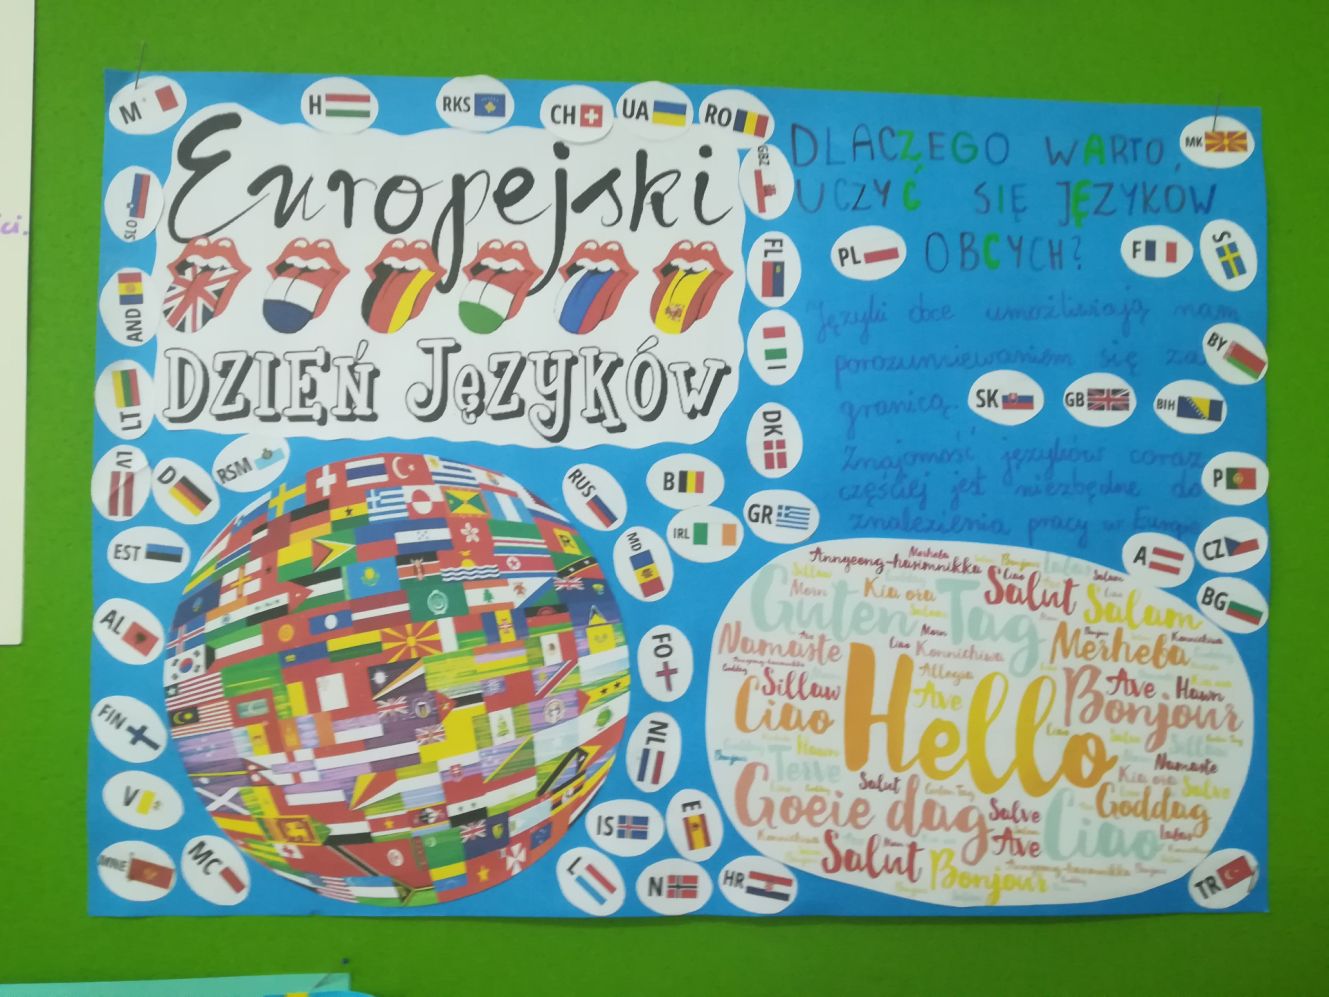 M
H
RKS
CH
UA
RO
MK
Europejski
DZIEŃ JęZYKÓW
SLO
AND
LT
LV
D
RSM
GBZ
FL
I
DK
DLACZEGO WARTO
UCZYĆ SIĘ JĘZYKÓW
OBCYCH?
PL
F
S
Języki obce umożliwiają nam
porozumiewaniem się za
granicą.
BY
SK
GB
BIH
Znajomość języków coraz
częściej jest niezbędne do
znalezienia pracy w Europie
P
A
CZ
BG
EST
AL
FIN
V
MNE
MC
RUS
B
GR
IRL
MD
FO
NL
IS
E
L
N
HR
TR
Annyeong-hasimnikka
Merheba
Guten Tag
Kia ora
Salut
Salam
Namaste
Konnichiwa
Merheba
Sillaw
Ciao
Allegia
Ave
Hello
Ave
Hawn
Bonjour
Terve
Namaste
Kia ora
Goeie dag
Salut
Salve
Ave
Ciao
Goddag
Salut
Bonjour